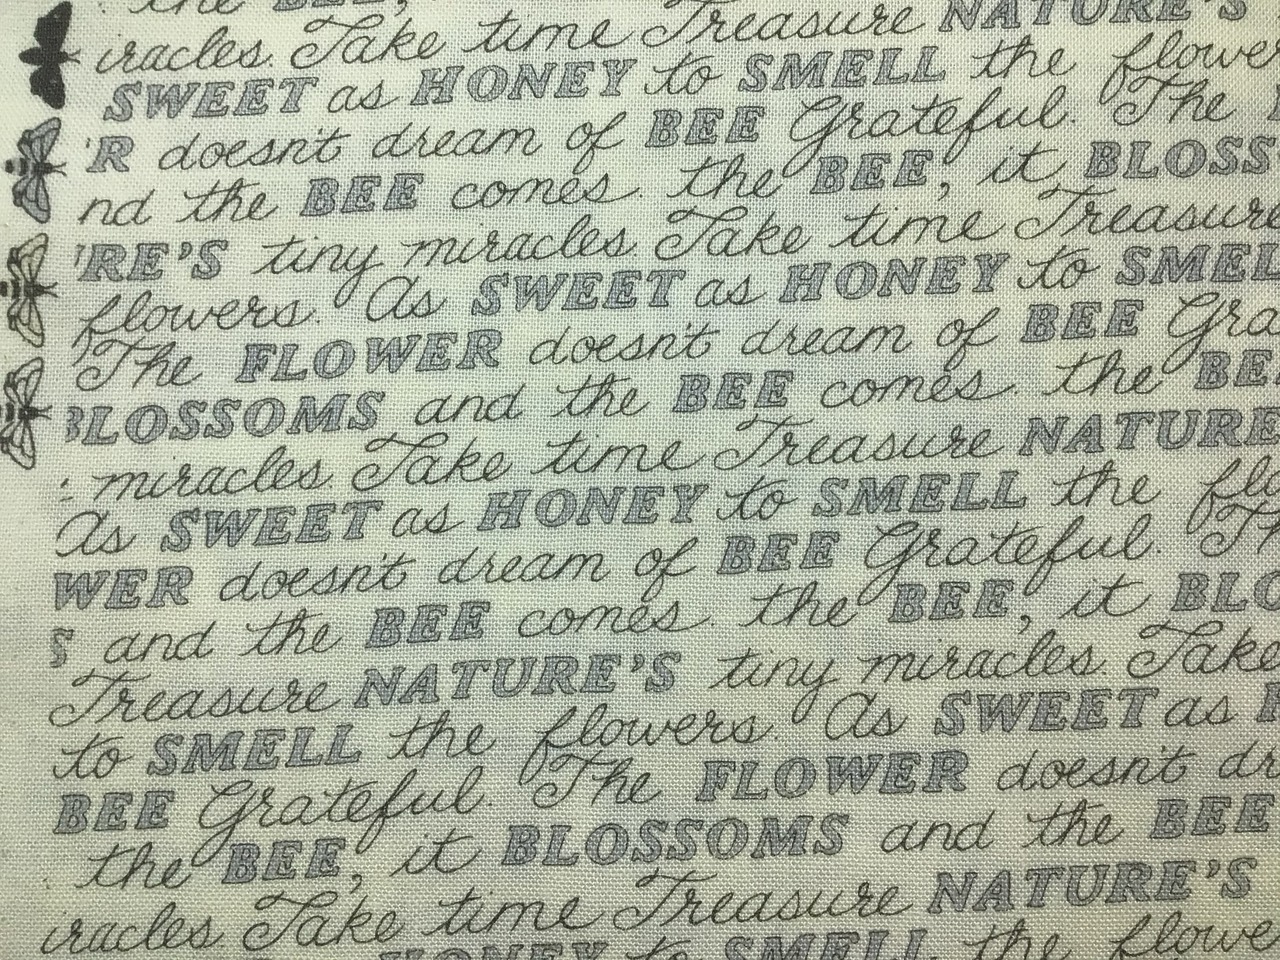 the BEE,
iracles. Take time Treasure NATURE'S
SWEET as HONEY to SMELL the flowe
'R doesn't dream of BEE Grateful. The
nd the BEE comes. the BEE, it BLOSS
'RE'S tiny miracles. Take time Treasure
flowers. As SWEET as HONEY to SMEL
The FLOWER doesn't dream of BEE Gra
BLOSSOMS and the BEE comes. the BEE
miracles. Take time Treasure NATURE
As SWEET as HONEY to SMELL the flo
WER doesn't dream of BEE Grateful. Th
S and the BEE comes. the BEE, it BLO
Treasure NATURE'S tiny miracles. Take
to SMELL the flowers. As SWEET as
BEE Grateful. The FLOWER doesn't dr
the BEE, it BLOSSOMS and the BEE
iracles. Take time Treasure NATURE'S
HONEY to SMELL the flowe